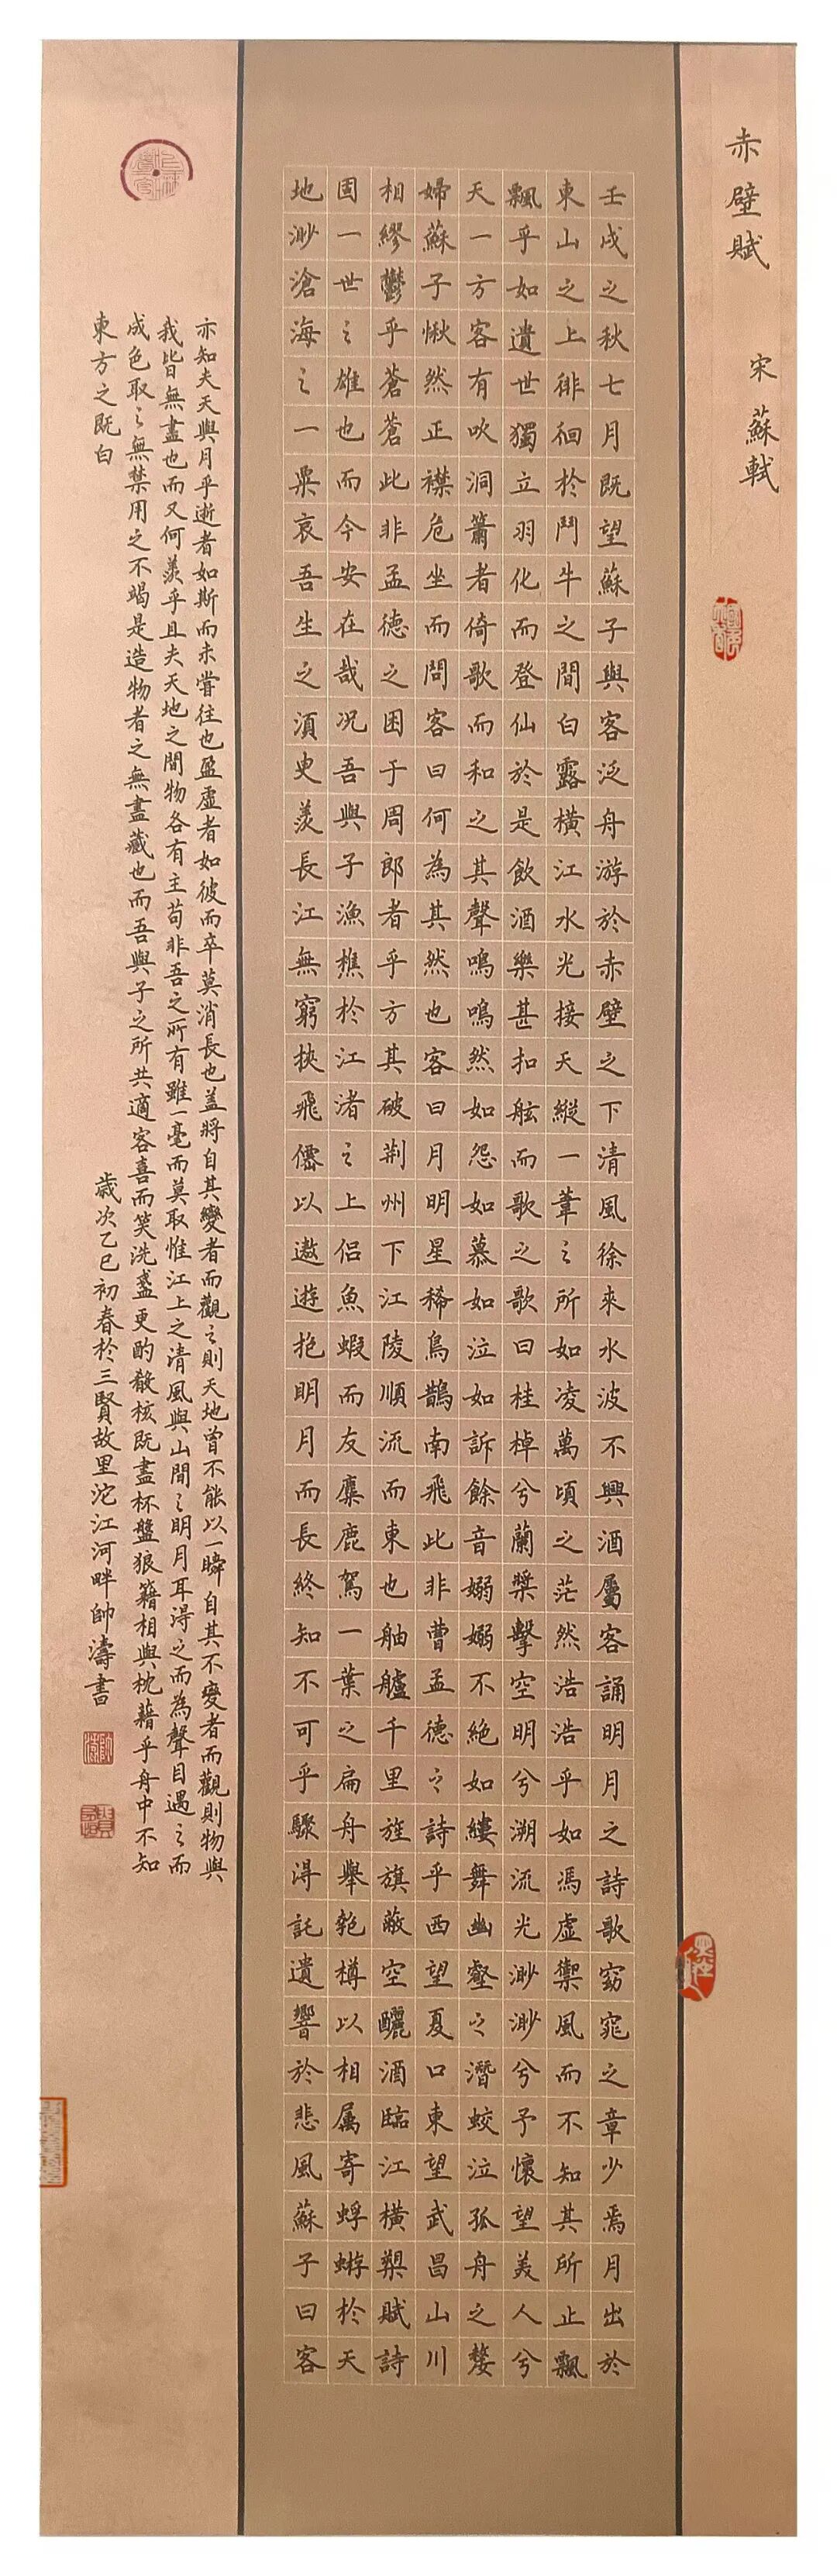 赤壁賦
宋 蘇軾
壬戌之秋七月既望蘇子與客泛舟游於赤壁之下清風徐來水波不興酒屬客誦明月之詩歌窈窕之章少焉月出於
東山之上徘徊於鬥牛之間白露橫江水光接天縱一葦之所如凌萬頃之茫然浩浩乎如馮虛禦風而不知其所止飄
飄乎如遺世獨立羽化而登仙於是飲酒樂甚扣舷而歌之歌曰桂棹兮蘭槳擊空明兮溯流光渺渺兮予懷望美人兮
天一方客有吹洞簫者倚歌而和之其聲嗚嗚然如怨如慕如泣如訴餘音嫋嫋不絕如縷舞幽壑之潛蛟泣孤舟之嫠
婦蘇子愀然正襟危坐而問客曰何為其然也客曰月明星稀烏鵲南飛此非曹孟德之詩乎西望夏口東望武昌山川
相繆鬱乎蒼蒼此非孟德之困于周郎者乎方其破荆州下江陵順流而東也舳艫千里旌旗蔽空釃酒臨江橫槊賦詩
固一世之雄也而今安在哉況吾與子漁樵於江渚之上侶魚蝦而友麋鹿駕一葉之扁舟舉匏樽以相属寄蜉蝣於天
地渺滄海之一粟哀吾生之須臾羨長江無窮挾飛僊以遨遊抱明月而長終知不可乎驟得託遺響於悲風蘇子曰客
亦知夫天與月乎逝者如斯而未嘗往也盈虛者如彼而卒莫消長也蓋將自其變者而觀之則天地曾不能以一瞬自其不變者而觀則物與
我皆無盡也而又何羨乎且夫天地之間物各有主苟非吾之所有雖一毫而莫取惟江上之清風與山間之明月耳得之而為聲目遇之而
成色取之無禁用之不竭是造物者之無盡藏也而吾與子之所共適客喜而笑洗盞更酌殽核既盡杯盤狼籍相與枕藉乎舟中不知
東方之既白
歲次乙巳初春於三賢故里沱江河畔帥濤書